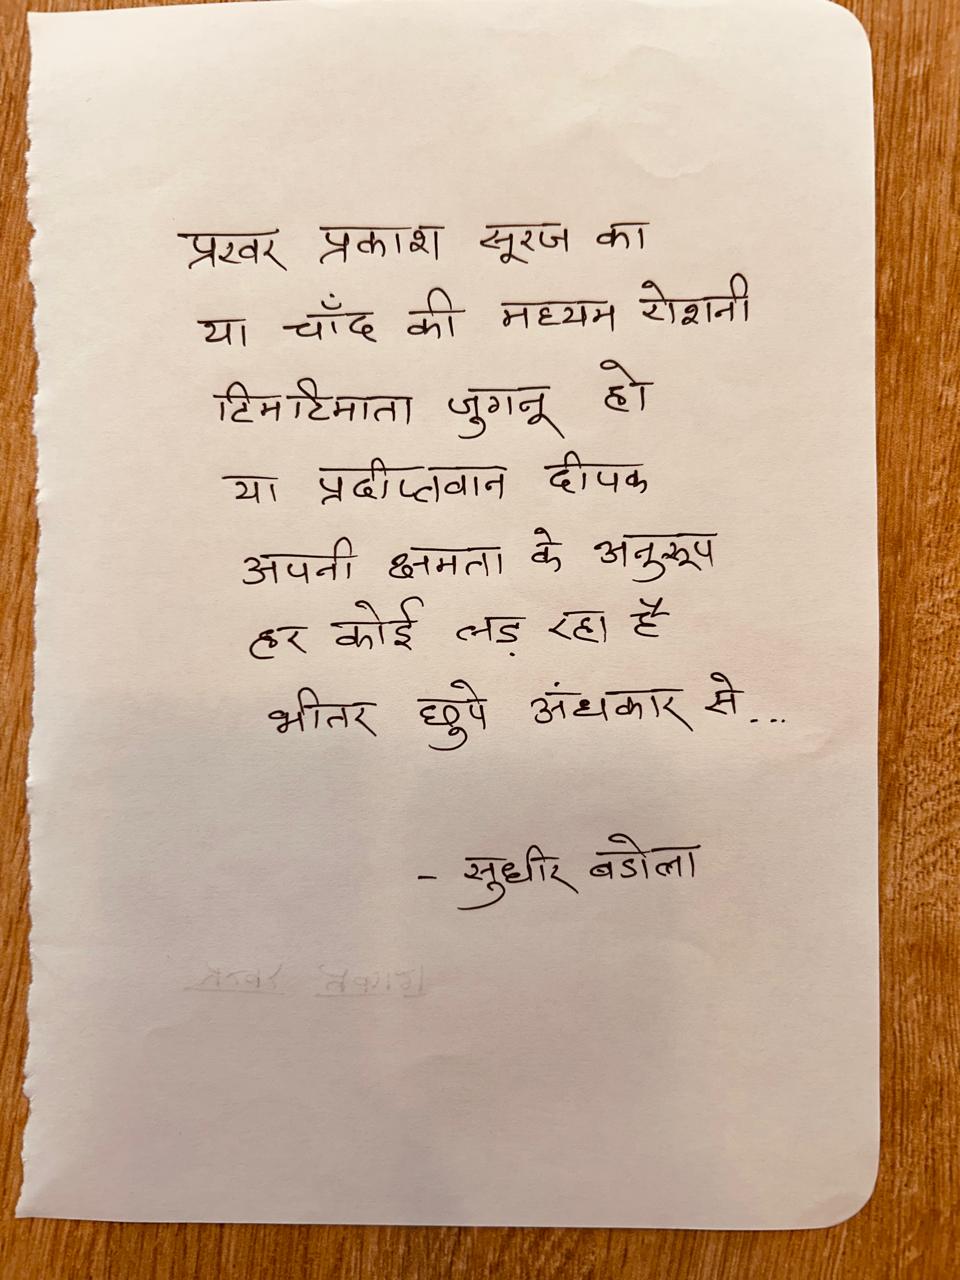 प्रखर प्रकाश सूरज का
या चाँद की मध्यम रोशनी
टिमटिमाता जुगनू हो
या प्रदीप्तवान दीपक
अपनी क्षमता के अनुरूप
हर कोई लड़ रहा है
भीतर छुपे अंधकार से...
- सुधीर बडोला